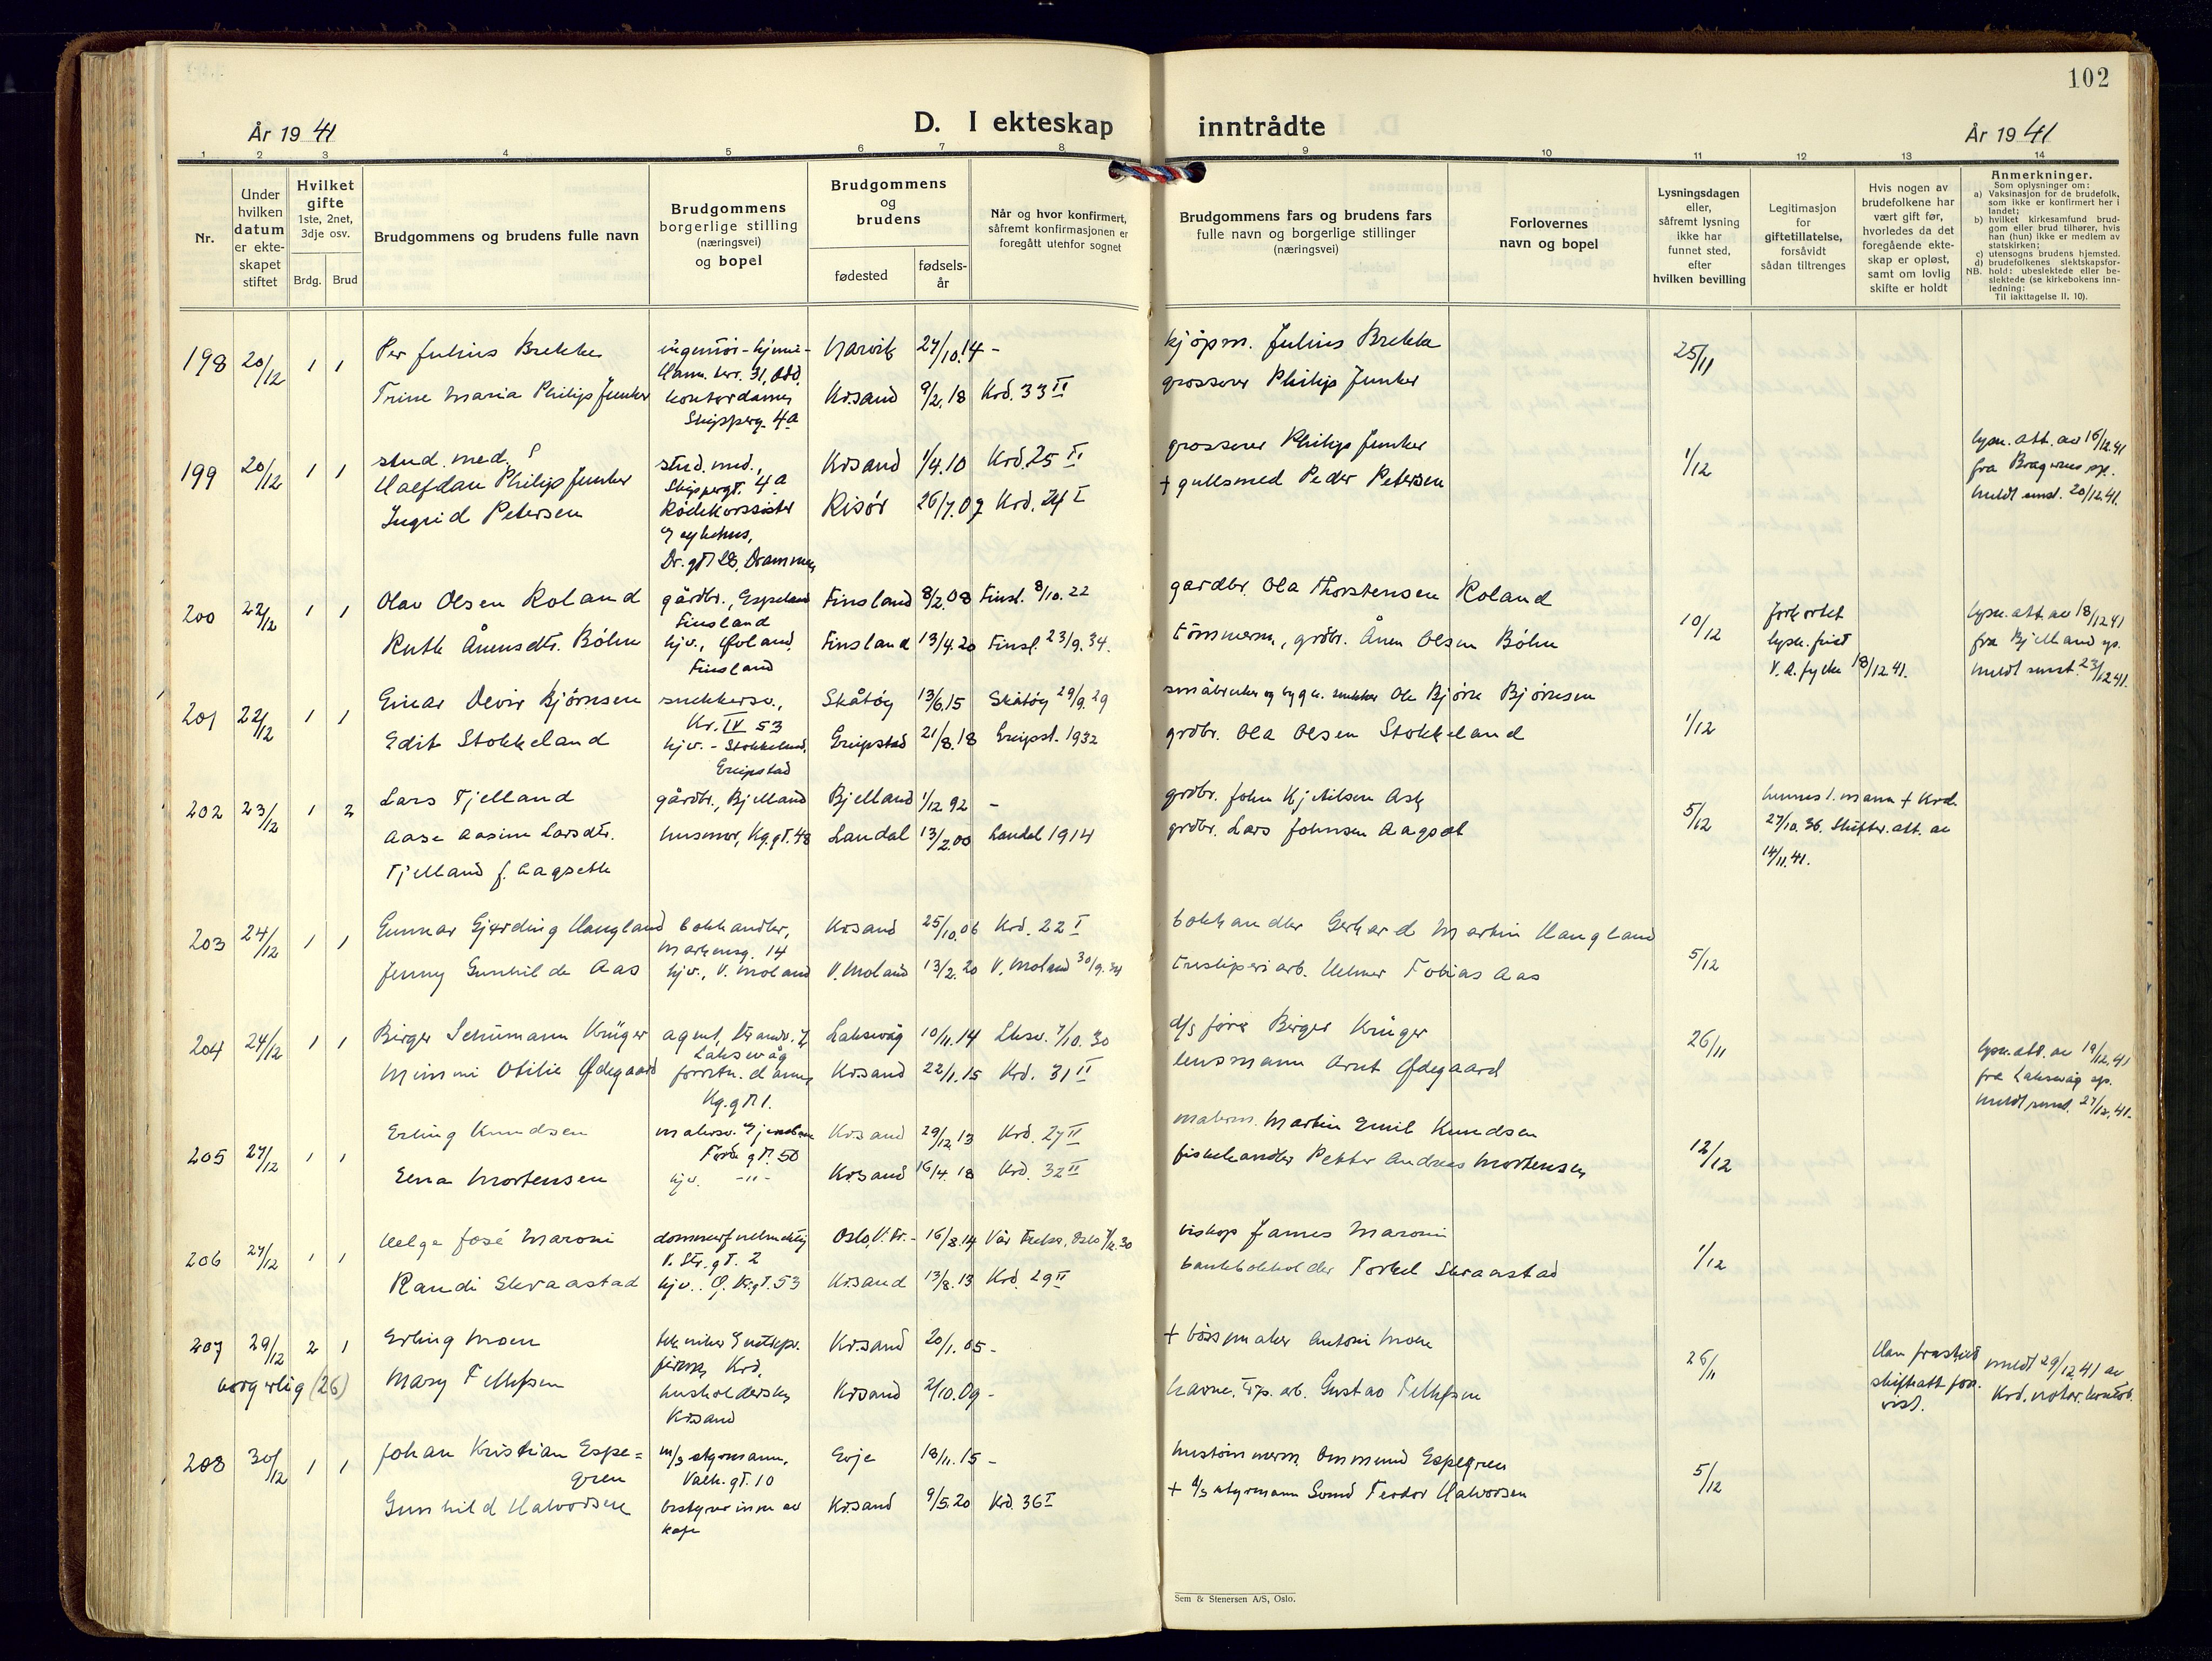 102
År 1941
D. I ekteskap inntrådte
År 1941
1 2 3 4 5 6 7 8 9 10 11 12 13 14
Nr.
Under hvilken datum er ekteskapet stiftet
Hvilket gifte
1ste, 2net, 3dje osv.
Brdg. Brud
Brudgommens og brudens fulle navn
Brudgommens borgerlige stilling (næringsvei) og bopel
Brudgommens og brudens
fødested
fødselsår
Når og hvor konfirmert, såfremt konfirmasjonen er foregått utenfor sognet
Brudgommens fars og brudens fars fulle navn og borgerlige stillinger (næringsvei)
Forlovernes navn og bopel
Lysningsdagen eller, såfremt lysning ikke har funnet sted, efter hvilken bevilling
Legitimasjon for giftetillatelse, forsåvidt sådan tiltrenges
Hvis nogen av brudefolkene har vært gift før, hvorledes da det foregående ekteskap er opløst, samt om lovlig skifte er holdt
Anmerkninger.
Som oplysninger om:
a) Vaksinasjon for de brudefolk, som ikke er konfirmert her i landet;
b) hvilket kirkesamfund brudgom eller brud tilhører, hvis han (hun) ikke er medlem av statskirken;
c) utensogns brudens hjemsted.
d) brudefolkenes slektskapsforhold: ubeslektede eller beslektede (se kirkebokens innledning:
NB. Til iakttagelse II. 10).
198 20/12 1 1 Per Julius Brekke ingeniør-kjemi- Narvik 27/10.14 - kjøpm. Julius Brekke 25/11
Ham. terr. 31, Odd.
Trine Maria Philip Junker kontordame, Kr.sand 9/2.18 Krd. 33 II grosserer Philip Junker
Skipperg. 4a
199 20/12 1 1 stud. med.
Halfdan Philip Junker stud. med., Skippergt. 4a Kr.sand 1/4.10 Krd. 25 II grosserer Philip Junker 1/12 lysn. att. av 16/12.41
fra Bragernes sp.
meldt smst. 20/12.41.
Ingrid Petersen Rødekorssøster Risør 26/7.07 Krd. 24 I + gullsmed Peder Petersen
sykehus,
Dr. gt. 28, Drammen
200 22/12 1 1 Olav Olsen Roland gårdbr., Espeland Finsland Finsland 8/2.08 Finsl. 8/10.22 gardbr. Ola Thorstensen Roland 10/12 forkortet
lysn. frist
18/12 41.
lysn. att. av 18/12 41
fra Bjelland sp.
meldt smst. 23/12 41.
Ruth Ånensdtr. Bøhn hjv., Finsland Finsland 13/4.20 Finsl. 23/9.34. tømmerm., grdbr. Ånen Olsen Bøhn
201 22/12 1 1 Einar Devir Bjørnsen snekkersv., Kr. IV 53 Skåtøy 13/6.15 Skåtøy 29/9.29 småbruker og bygn. snekker Ole Bjørn Bjørnsen 1/12
Edit Stokkeland hjv. - Stokkeland, Greipstad Greipstad 21/8.18 Greipst. 1932 grdbr. Ola Olsen Stokkeland
202 23/12 1 2 Lars Tjelland gårdbr., Bjelland Bjelland 1/12 92 - grdbr. John Kjetilsen Ask 5/12 hennes 1. mann + Krd.
27/10.36. Skiftr. att. av
14/11.41.
Aase Aasine Larsdtr. husmor, Kg.gt. 48 Laudal 13/2.00 Laudal 1914 grdbr. Lars Johnsen Aagset
Tjelland f. Aagseth
203 24/12 1 1 Gunnar Gjerding Haugland bokhandler, Markensg. 14 Kr.sand 25/10.06 Krd. 22 I bokhandler Gerhard Martin Haugland 5/12
Jenny Gunhilde Aas hjv., V. Moland V. Moland 13/2.20 V. Moland 30/9.34 tresliperiarb. Helmer Tobias Aas
204 24/12 1 1 Birger Schumann Krüger agent, Laksevåg Laksevåg 10/11.14 Lksv. 7/10.30 d/s fører Birger Krüger 26/11 lysn. att. av 19/12.41
fra Laksevåg sp.
meldt smst. 27/12.41.
Mimmi Otilie Ødegaard forretn. dame, Kg. gt. 1. Kr.sand 22/1.15 Krd. 31 II lensmann Arnt Ødegaard
205 27/12 1 1 Erling Knudsen malersv. gt. 50 Kr.sand 29/12.13 Krd. 27 II malerm. Martin Emil Knudsen 12/12
Erna Mortensen hjv. -"- Kr.sand 16/4.18 Krd. 32 II fiskehandler Petter Andreas Mortensen
206 27/12 1 1 Helge José Maroni dommerfullmektig V. Str. gt. 2 Oslo, V. Fr. - 16/8.14 Vår Frelser, Oslo 30 biskop James Maroni 1/12
Randi Skraastad hjv. Ø. Kr.gt. 53 Kr.sand 13/8.13 Krd. 29 II bankbokholder Torkel Skraastad
207 29/12 2 1 Erling Moen tekniker firma, Krd. Kr.sand 20/1.05 - + bøssmaker Antoni Moen 26/11 Han fraskilt
skifteatt. forevist.
meldt 29/12.41 av
Krd. notar. kontor.
borgerlig (26) Mary Tellefsen husholderske, Kr.sand Kr.sand 2/10.09 - havne. exp. arb. Gustav Tellefsen
208 30/12 1 1 Johan Kristian Espe= m/s styrmann, Valh. gt. 10 Evje 18/11.15 - hustømmerm Ommund Espegren 5/12
gren
Gunhild Halvorsen bestyrerinne av kafe Kr.sand 9/5.20 Krd. 36 I + d/s styrmann Svend Teodor Halvorsen
Sem & Stenersen A/S, Oslo.